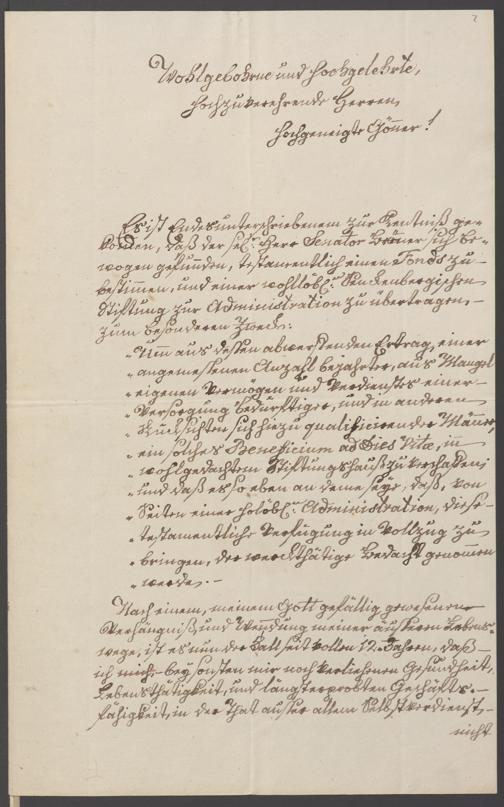 2
Wohlgebohrne und Hochgelehrte,
Hochzuverehrende Herren,
Hochgeneigte Gönner!
Es ist Endesunterschriebenem zur Kentniß ge-
kommen, daß der sel: Herr Senator Brönner sich be-
wogen gefunden, testamentlich einen Fonds zu
bestimmen, und einer wohllöbl: Senkenbergischen
Stiftung zur Administration zu übertragen,
zum besonderen Zweck:
"Um aus dessen abwerfenden Ertrag, einer
"angemessenen Anzahl bejahrter, aus Mangel
"eigenen Vermögen und Verdienstes einer
"Versorgung bedürftiger, und in anderen
"Rücksichten sich hiezu qualificirender Männer
"ein solches Beneficium ad Dies Vitæ, im
"wohlgedachtem Stiftungshauß zu verschaffen;
"und daß es so eben an deme seye, daß, von
"Seiten einer holöbl: Administration, diese
"testamentliche Verfügung in Vollzug zu
"bringen, der werckthätige Bedacht genommen
"werde. -
Nach einem, meinem Gott gefällig gewesenen
Verhängniß, und Wendung meiner äussern Lebens-
wege, ist es nun der Fall seit vollen 12. Jahren, daß
ich mich bey sonsten mir noch verliehenen Gesundheit,
Lebensthätigkeit, und längst erprobten Geschäfts-
fähigkeit, in der That ausser allem Selbstverdienst
nicht